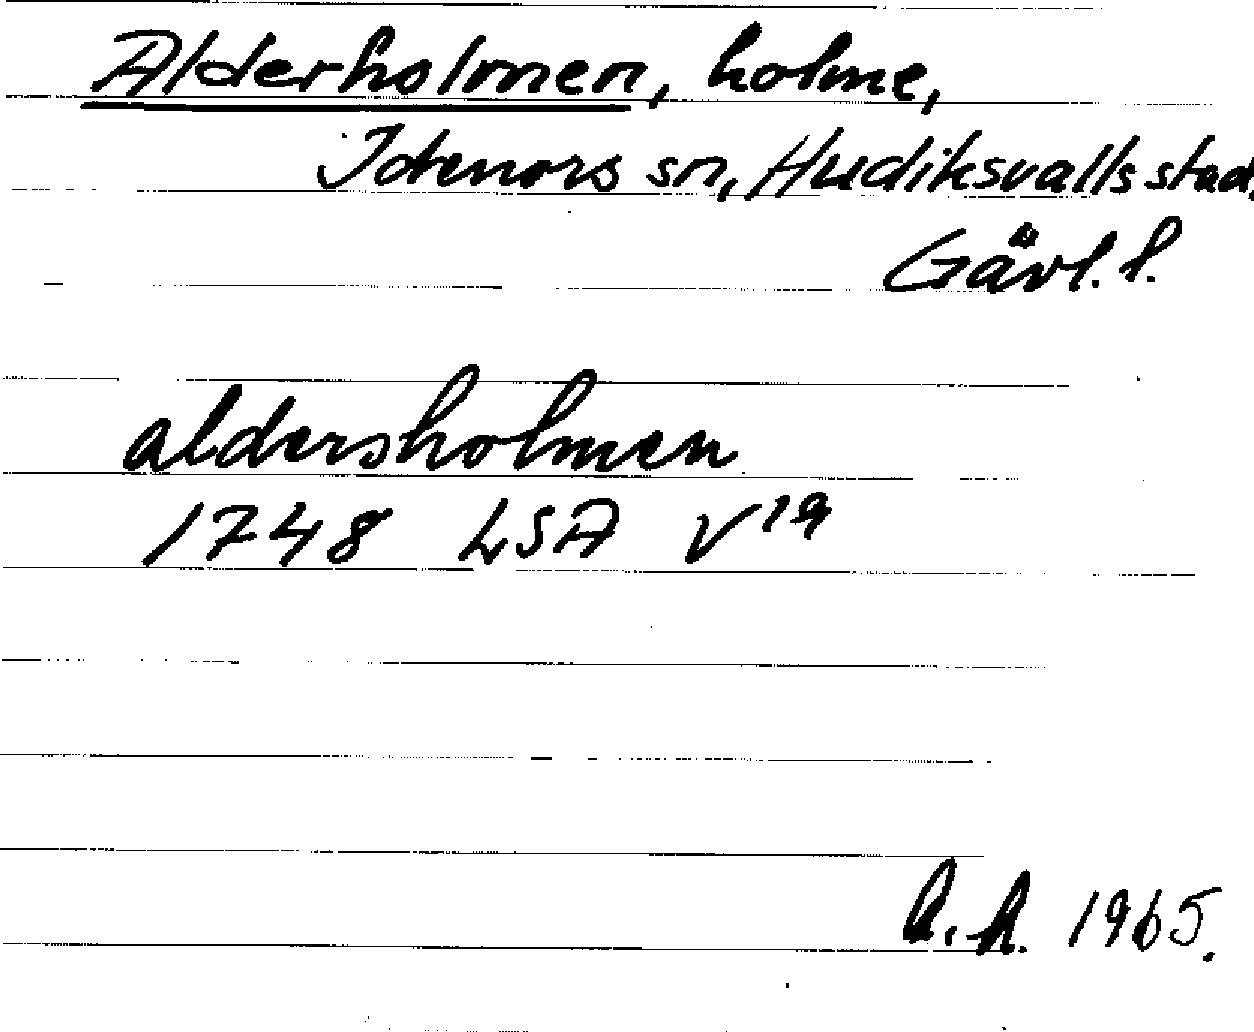 Alderholmen, holme,
Idenors sn, Hudiksvalls stad,
Gävl. l.
aldersholmen
1748 LSA V 19
1965.